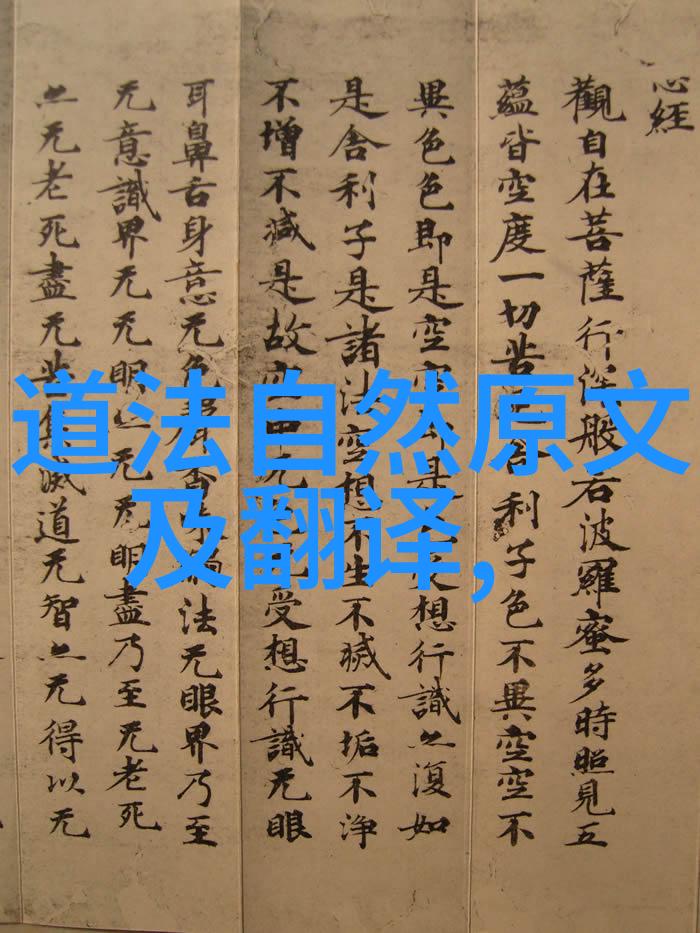 心經
觀自在菩薩行深般若波羅蜜多時照見五
蘊皆空度一切苦舍利子色不異空空不
異色色即是空空即是受想行識亦復如
是舍利子是諸法空想不生不滅不垢不淨
不增不減是故空中无受想行識无眼
耳鼻舌身意无色聲香味觸法无眼界乃至
无意識界无无明亦无无明盡乃至无老死
亦无老死盡无苦集滅道无智亦无得以无
道法自然原文
及翻译,